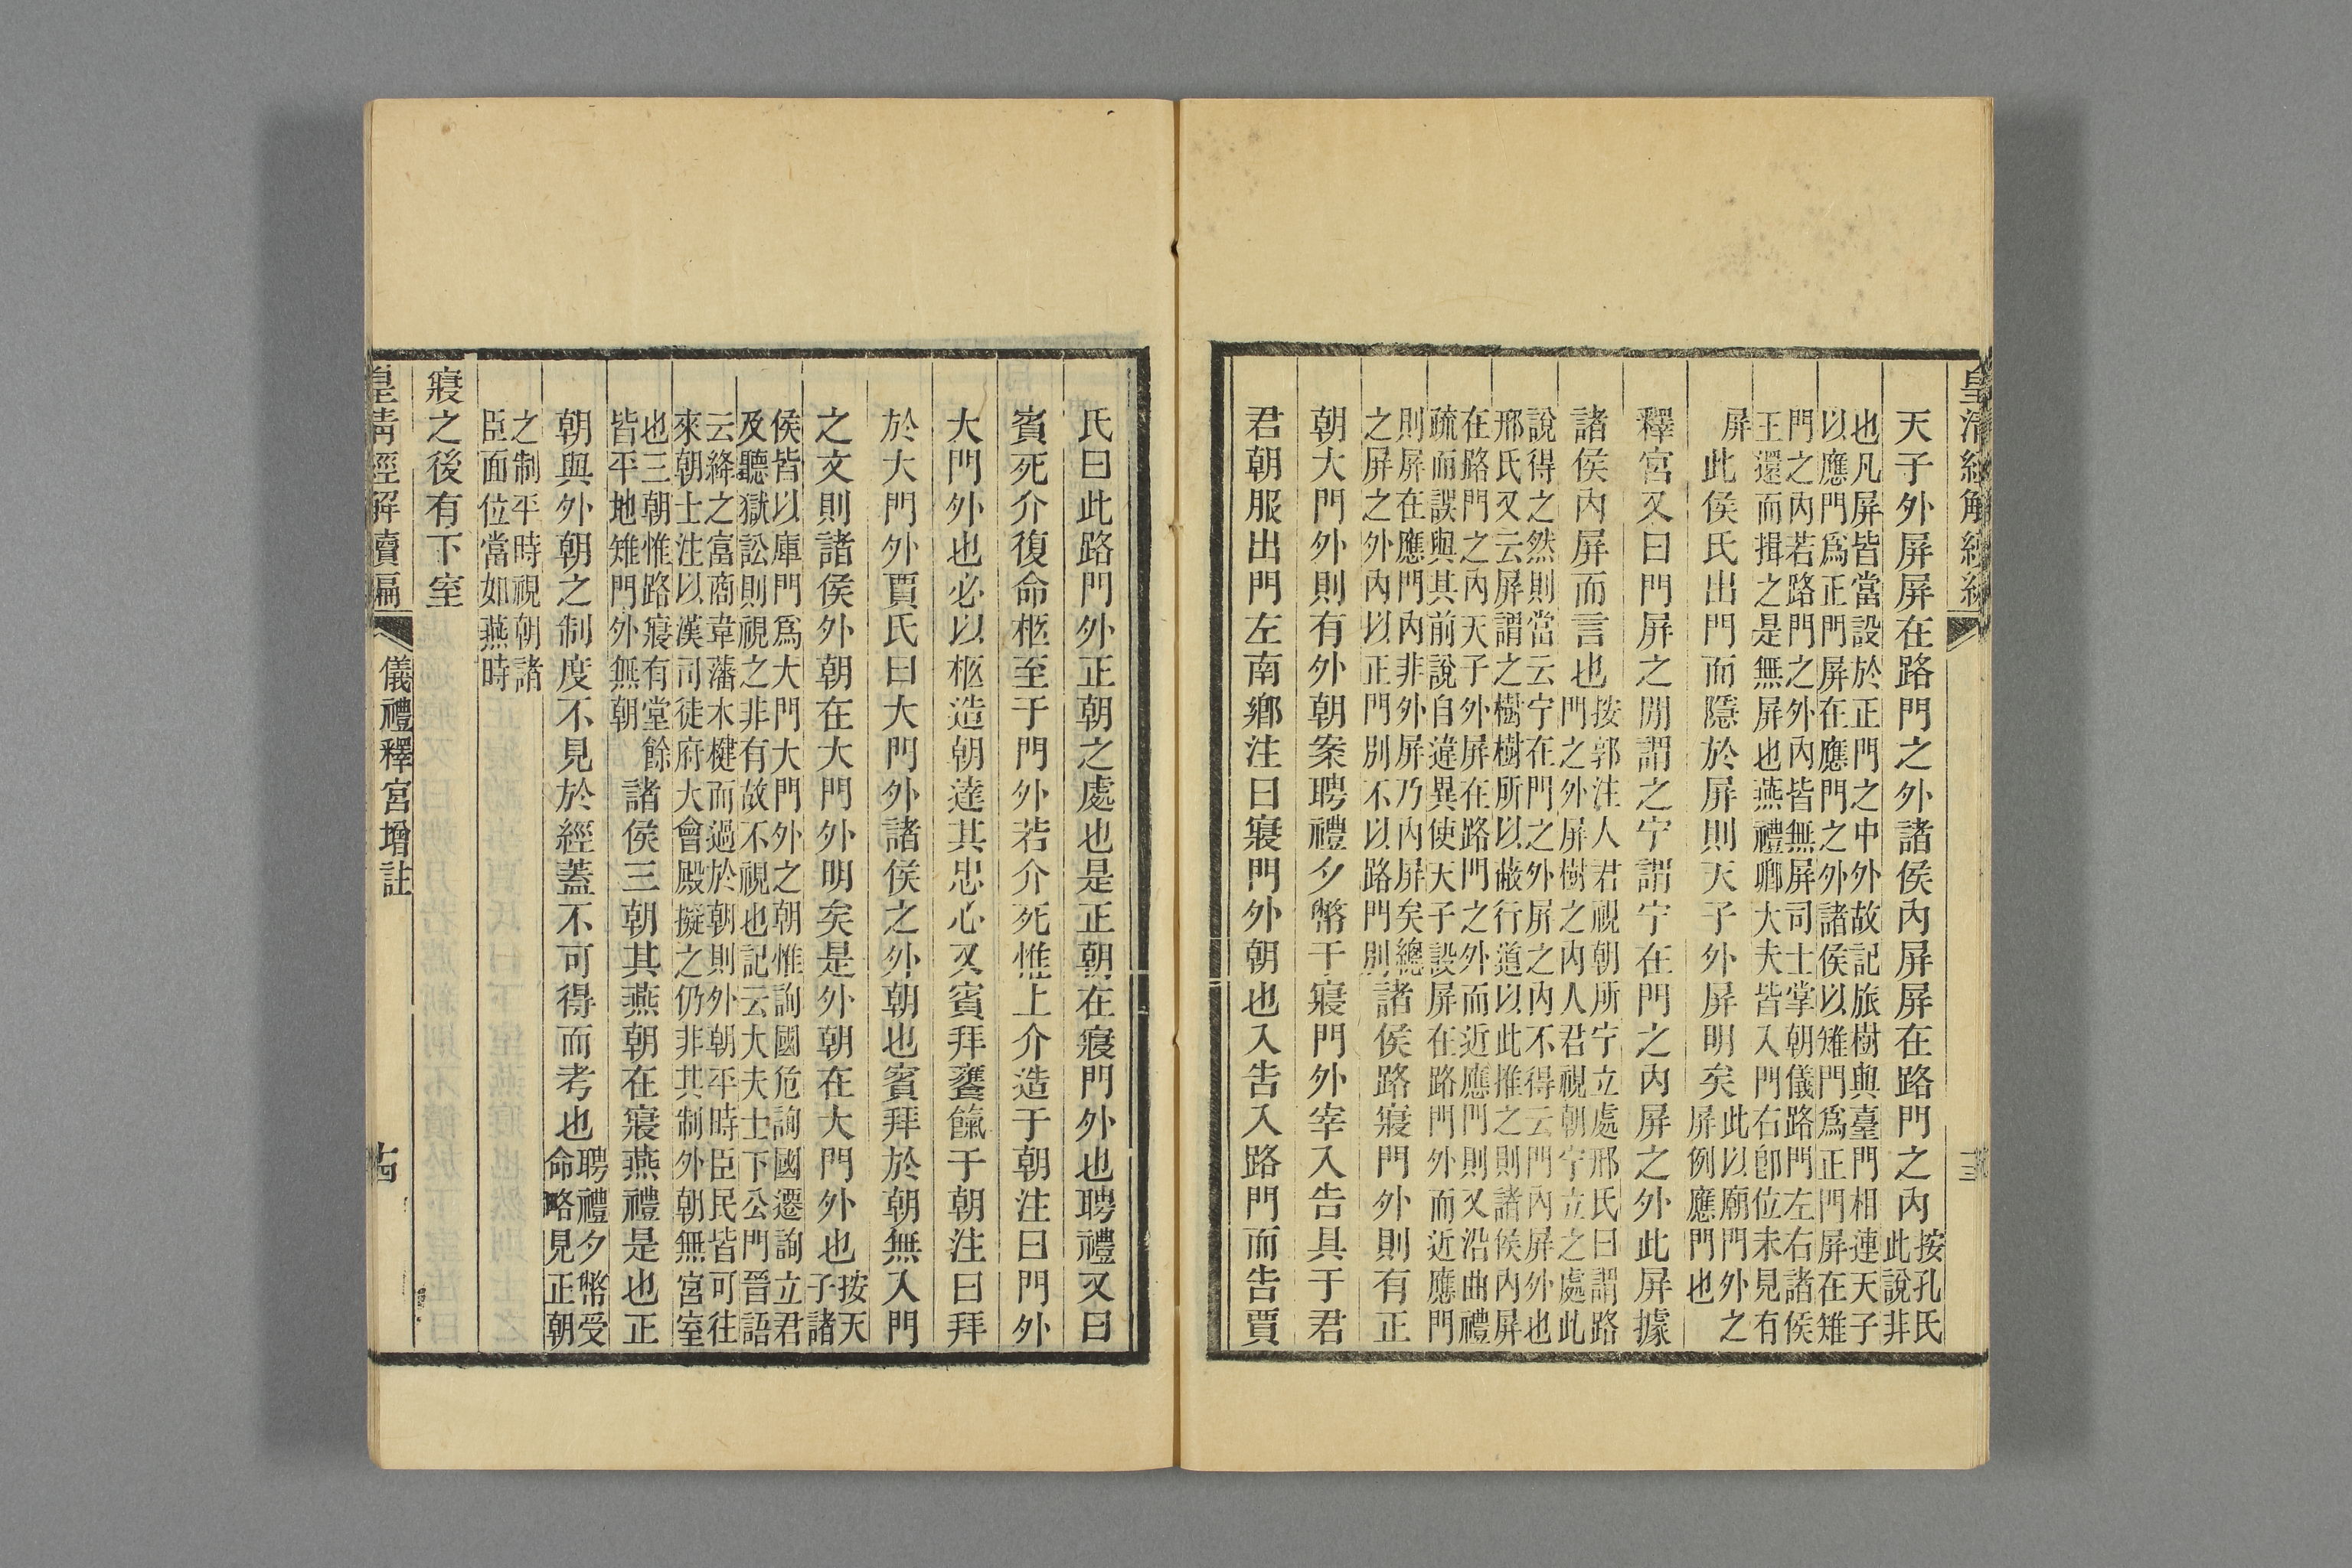 皇清經解續編
十三
天子外屏屏在路門之外諸侯內屏屏在路門之內按孔氏
此說非
也凡屏皆當設於正門之中外故記旅樹與臺門相連天子
以應門爲正門屏在應門之外諸侯以雉門爲正門屏在雉
門之內若路門之外內皆無屏司士掌朝儀路門左右諸侯
王還而揖之是無屏也燕禮卿大夫皆入門右卽位未見有
屏
此侯氏出門而隱於屏則天子外屏明矣此以廟門外之
屏例應門也
釋宮又曰門屏之閒謂之宁謂宁在門之內屏之外此屏據
諸侯內屏而言也按郭注人君視朝所宁立處邢氏曰謂路
門之外屏樹之內人君視朝宁立之處此
說得之然則當云宁在門之外屏之內不得云門內屏外也
邢氏又云屏謂之樹樹所以蔽行道以此推之則諸侯內屏
在路門之內天子外屏在路門之外而近應門則又沿曲禮
疏而誤與其前說自違異使天子設屏在路門外而近應門
則屏在應門內非外屏乃內屏矣總
之屏之外內以正門別不以路門別
諸侯路寢門外則有正
朝大門外則有外朝案聘禮夕幣于寢門外宰入告具于君
君朝服出門左南鄉注曰寢門外朝也入告入路門而告賈
氏曰此路門外正朝之處也是正朝在寢門外也聘禮又曰
賓死介復命柩至于門外若介死惟上介造于朝注曰門外
大門外也必以柩造朝達其忠心又賓拜饔餼于朝注曰拜
於大門外賈氏曰大門外諸侯之外朝也賓拜於朝無入門
之文則諸侯外朝在大門外明矣是外朝在大門外也按天
子諸
侯皆以庫門爲大門大門外之朝惟詢國危詢國遷詢立君
及聽獄訟則視之非有故不視也記云大夫士下公門晉語
云絳之富商韋藩木楗而過於朝則外朝平時臣民皆可往
來朝士注以漢司徒府大會殿擬之仍非其制外朝無宮室
也三朝惟路寢有堂餘
皆平地雉門外無朝
諸侯三朝其燕朝在寢燕禮是也正
朝與外朝之制度不見於經蓋不可得而考也聘禮夕幣受
命略見正朝
之制平時視朝諸
臣面位當如燕時
寢之後有下室
皇清經解續編
儀禮釋宮增註
十四